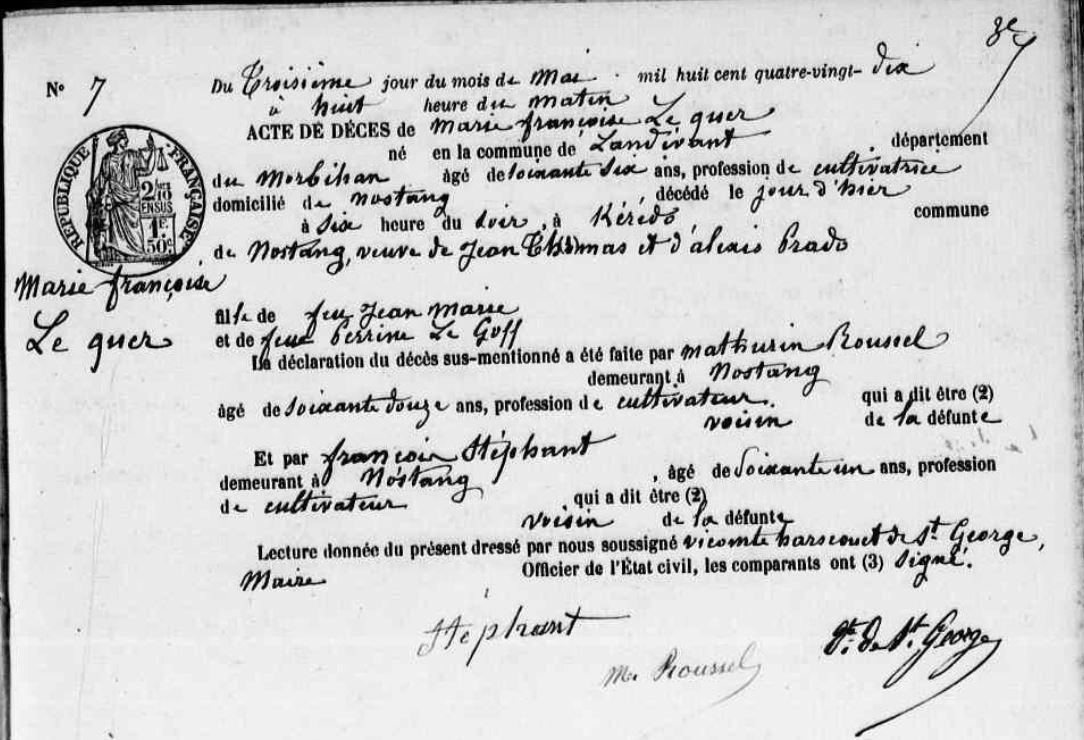 N° 7
Du Troisième jour du mois de Mai mil huit cent quatre-vingt-dix
à huit heure du matin
ACTE DE DÉCES de Marie françoise Le quer
né en la commune de Landivant, département
du Morbihan âgé de soixante six ans, profession de cultivatrice
domicilié de Nostang, décédé le jour d'hier
à six heure du soir, à Kérédo commune
de Nostang, veuve de Jean Thomas et d'alexis Prado
RÉPUBLIQUE FRANÇAISE
2/10 EN SUS
1F. 50c
Marie françoise
Le quer
fille de feu Jean Marie
et de feue Perrine Le Goff
La déclaration du décès sus-mentionné a été faite par Mathurin Roussel
demeurant à Nostang
âgé de soixante douze ans, profession de cultivateur. qui a dit être (2)
voisin de la défunte
Et par françois Stéphant
demeurant à Nostang, âgé de soixante un ans, profession
de cultivateur qui a dit être (2)
voisin de la défunte
Lecture donnée du présent dressé par nous soussigné vicomte harscouet de St George,
Maire Officier de l'État civil, les comparants ont (3) signé.
Stéphant
Roussel
Vte. de St. George